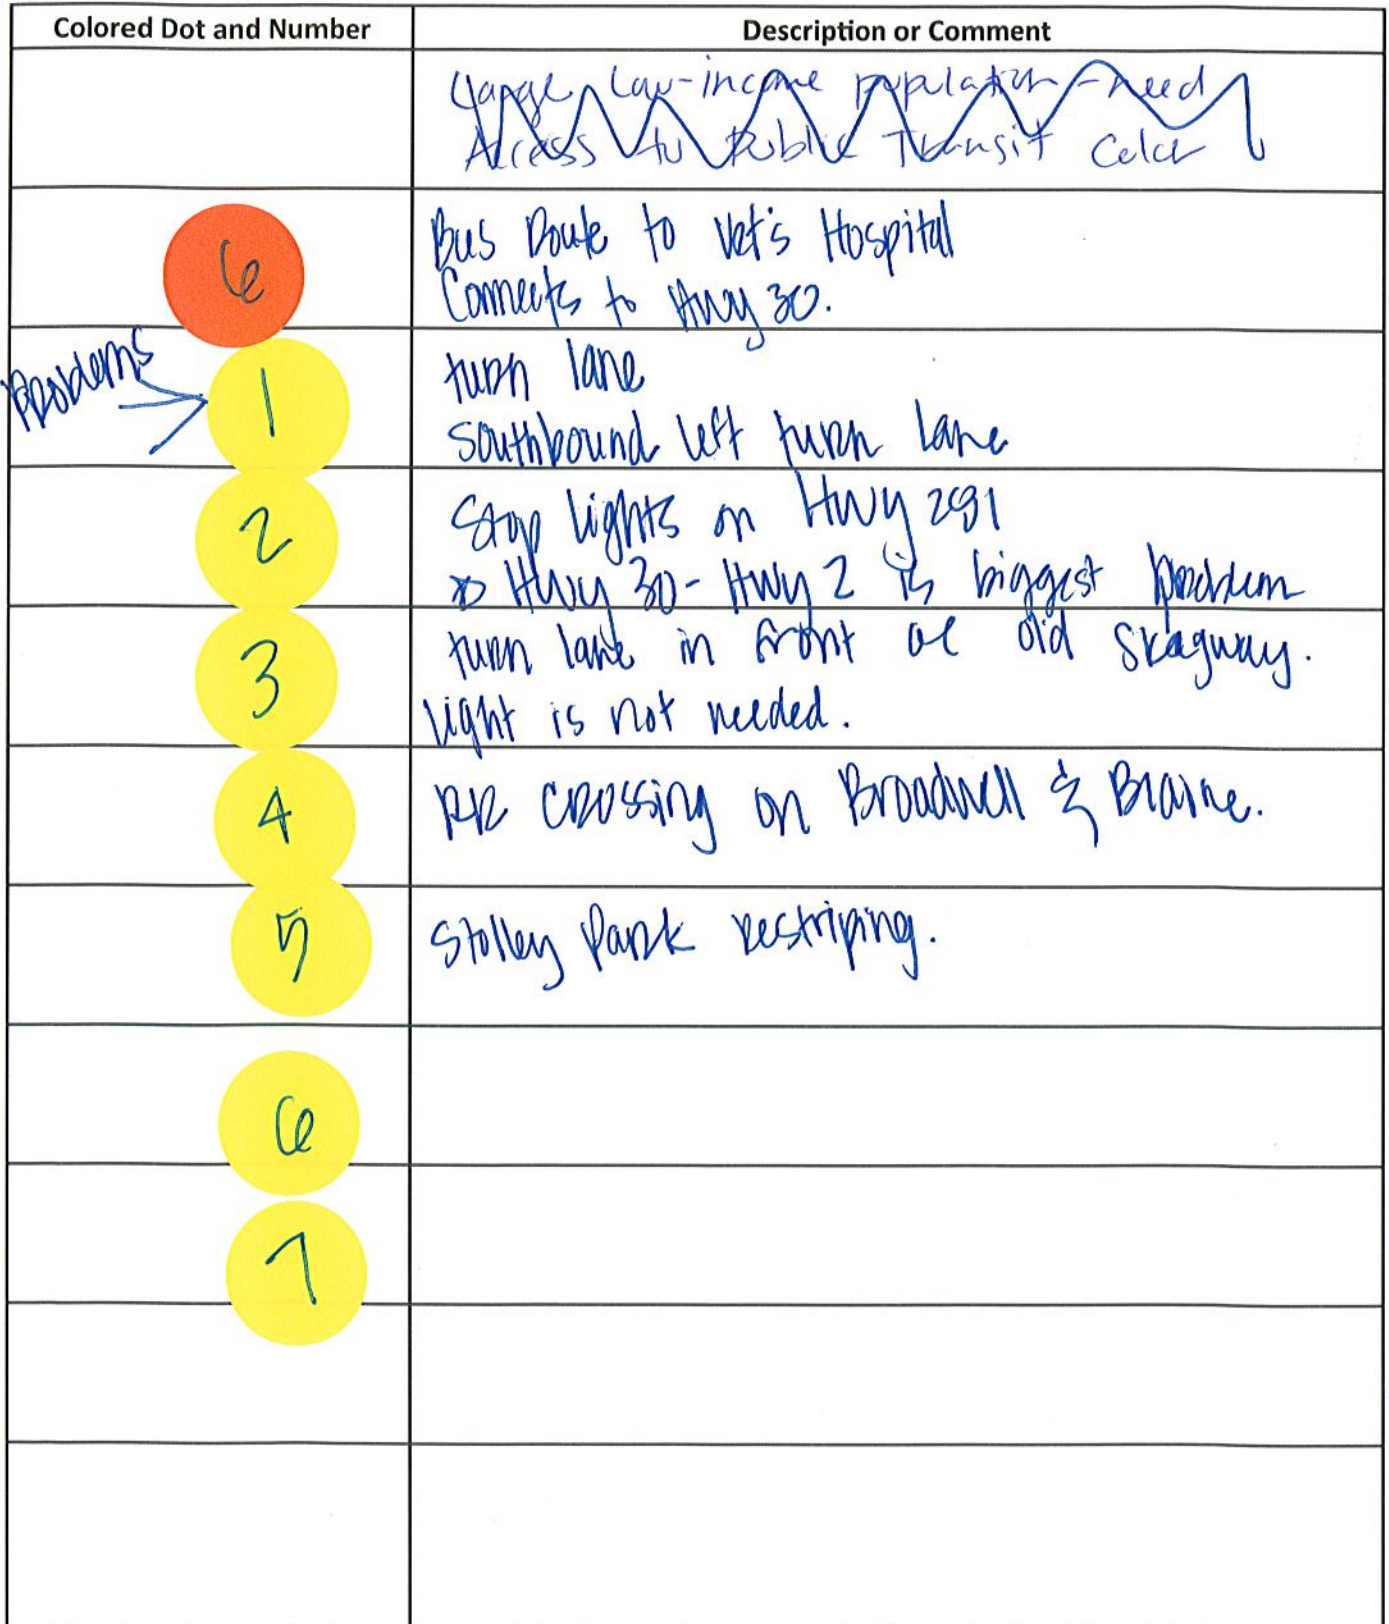 Colored Dot and Number Description or Comment
Large Low-income population - need
Access to Public Transit
6 Bus Route to Vet's Hospital
Connects to Hwy 30.
Problems
1 turn lane
southbound left turn lane
2 Stop lights on Hwy 281
Hwy 30 - Hwy 2 is biggest problem
3 turn lane in front of old Skagway.
light is not needed.
4 RR crossing on Broadwell & Blaine.
5 Stolley Park restriping.
6
7